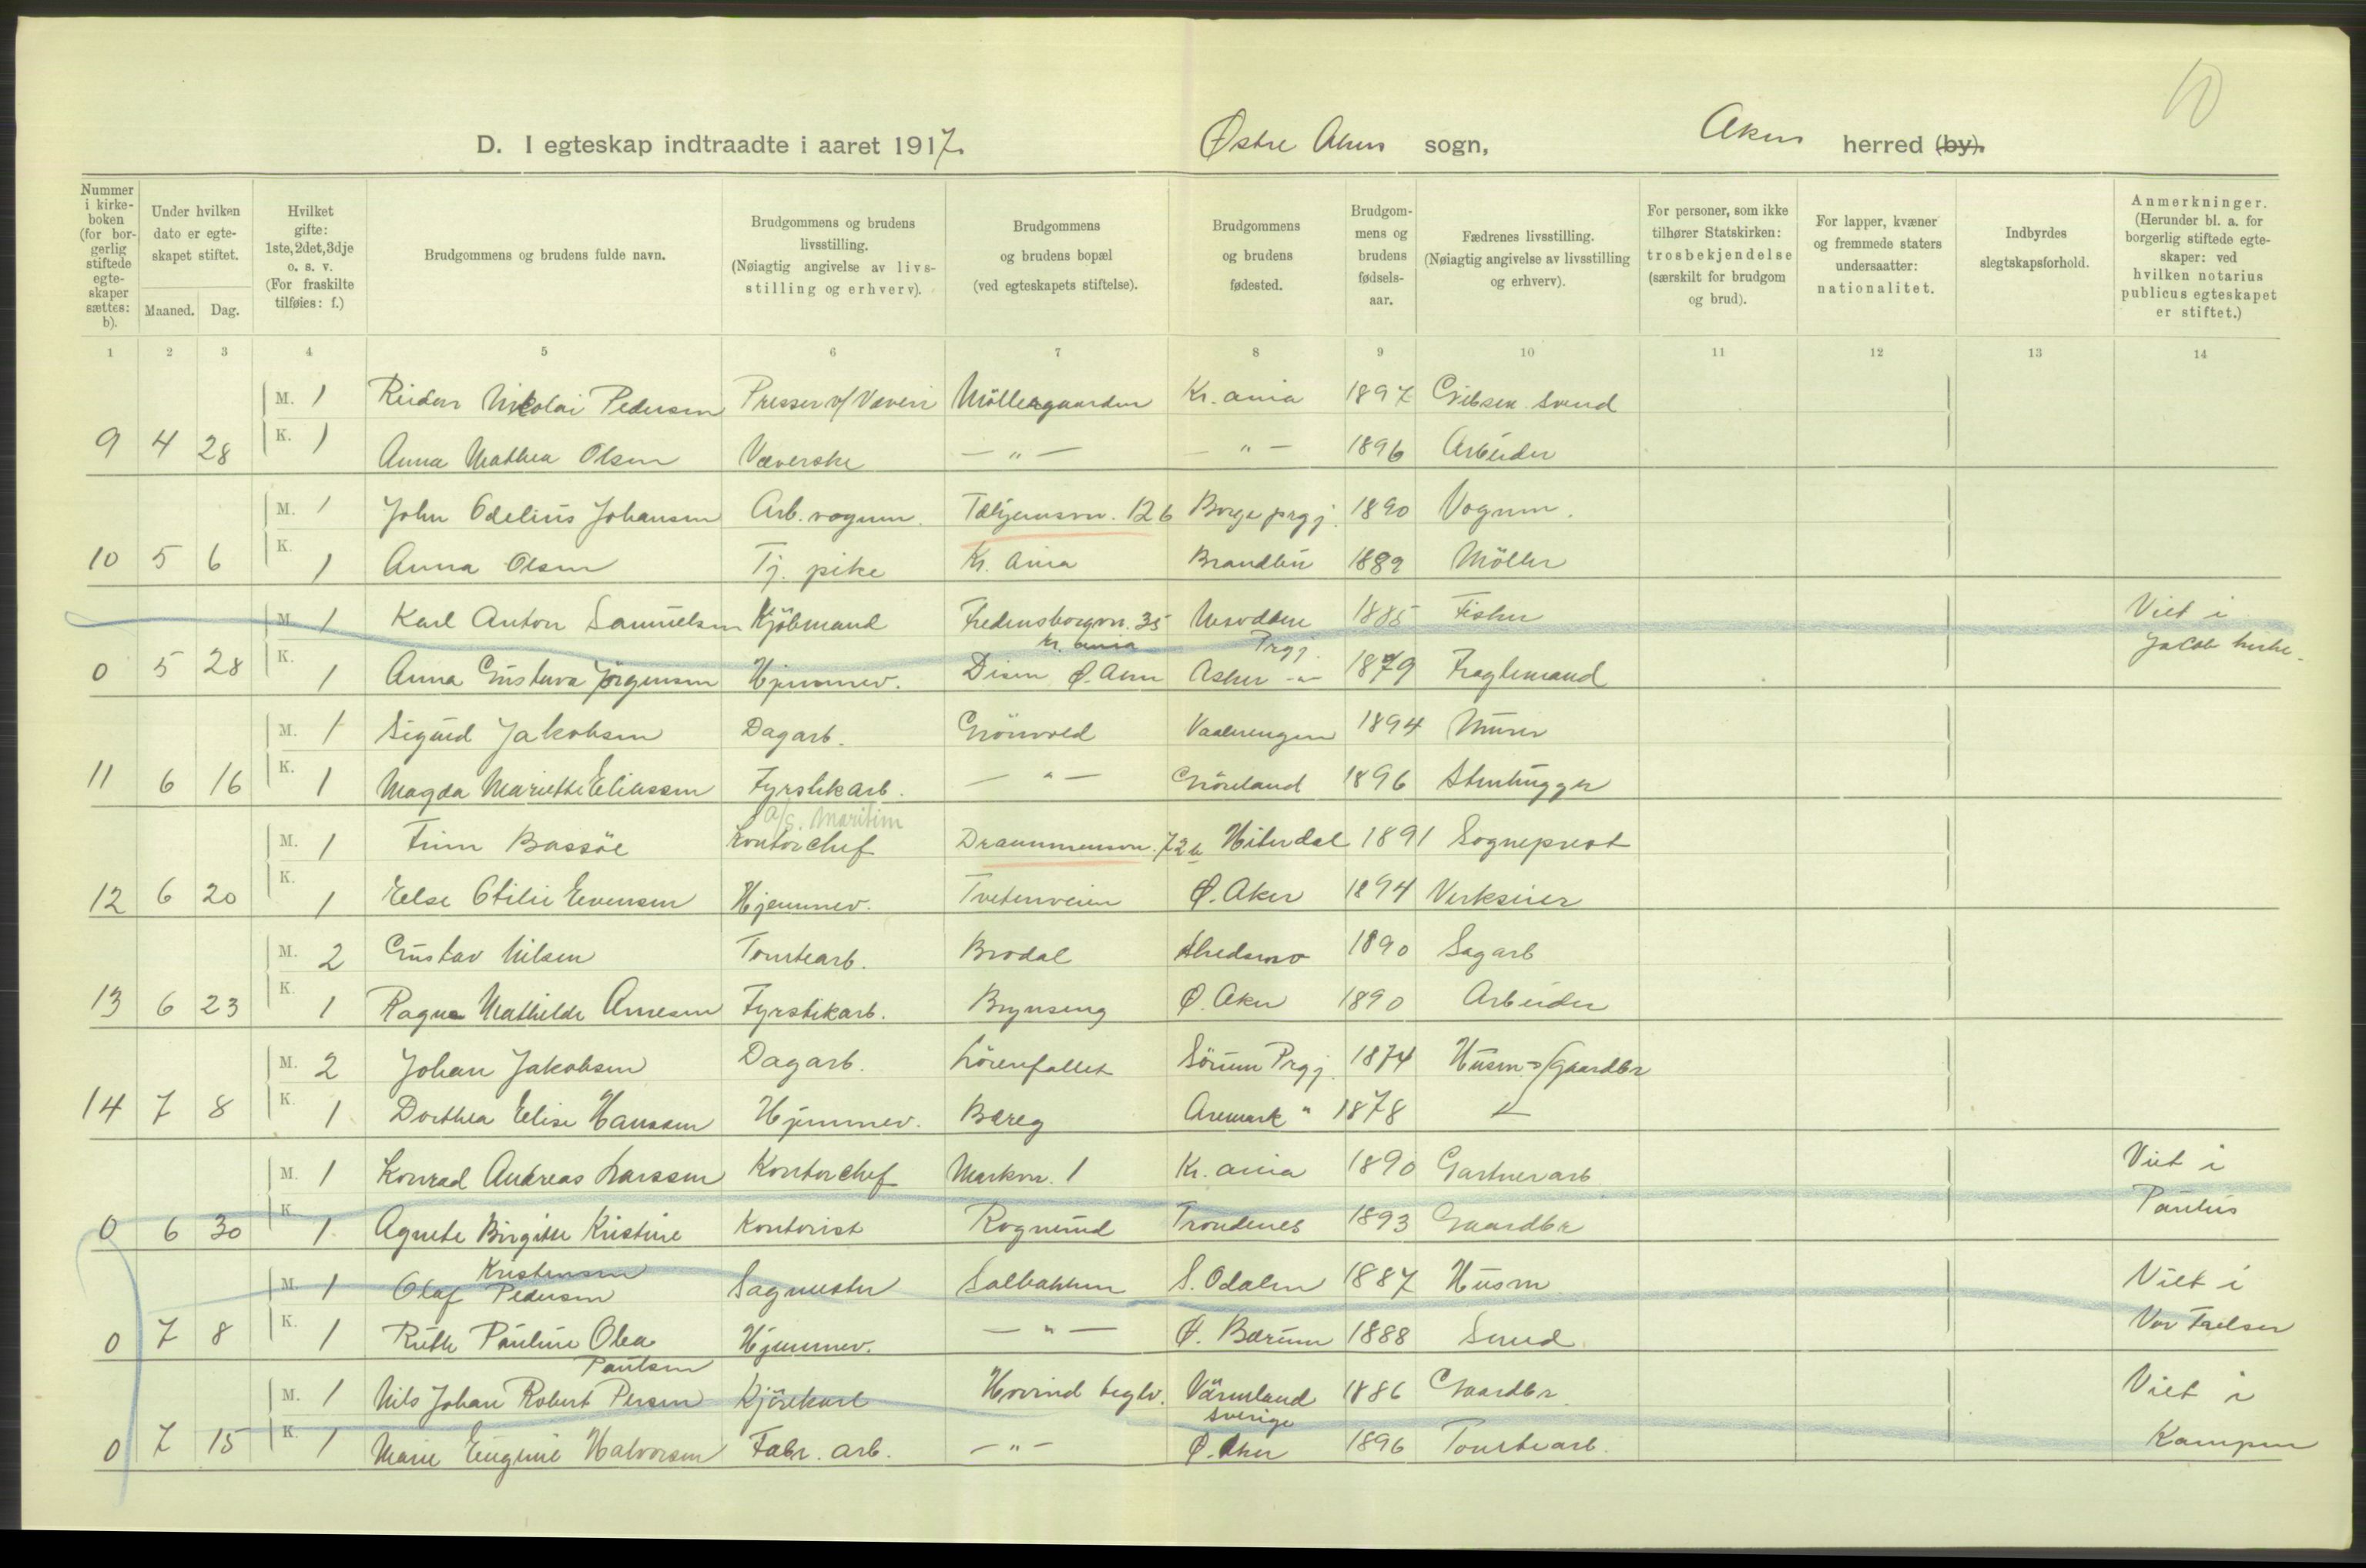 10
D. I egteskap indtraadte i aaret 1917. Østre Aker sogn, Aker herred (by).
Nummer i kirkeboken (for borgerlig stiftede egteskaper sættes: b).
Under hvilken dato er egteskapet stiftet.
Maaned. Dag.
Hvilket gifte: 1ste, 2det, 3dje o. s. v. (For fraskilte tilføies: f.)
Brudgommens og brudens fulde navn.
Brudgommens og brudens livsstilling. (Nøiagtig angivelse av livsstilling og erhverv).
Brudgommens og brudens bopæl (ved egteskapets stiftelse).
Brudgommens og brudens fødested.
Brudgommens og brudens fødselsaar.
Fædrenes livsstilling. (Nøiagtig angivelse av livsstilling og erhverv).
For personer, som ikke tilhører Statskirken: trosbekjendelse (særskilt for brudgom og brud).
For lapper, kvæner og fremmede staters undersaatter: nationalitet.
Indbyrdes slegtskapsforhold.
Anmerkninger. (Herunder bl. a. for borgerlig stiftede egteskaper: ved hvilken notarius publicus egteskapet er stiftet.)
1 2 3 4 5 6 7 8 9 10 11 12 13 14
M. 1 Reidar Nikolai Pedersen Presser v/ Væveri Möllergaarden Kr. ania 1897 Gibsen. svend
9 4 28 K. 1 Anna Mathea Olsen Væverske — " — — " — 1896 Arbeider
M. 1 John Odelius Johansen Arb. vognm. 12 b Borge prgj. 1890 Vognm.
10 5 6 K. 1 Anna Olsen Tj. pike Kr. ania Brandbu 1889 Möller
M. 1 Karl Anton Samuelsen Kjöbmand Fredensborgvn. 35 Nesodden 1885 Fisker Viet i
Kr. ania Prgj. Jacob kirke.
0 5 28 K. 1 Anna Gustava Jörgensen Hjemmev. Disen Ø. Aker Asker - " - 1879 Fragtemand
M. 1 Sigurd Jakobsen Dagarb. Grönvold Vaalerengen 1894 Murer
11 6 16 K. 1 Magda Mariethe Eliassen Fyrstikarb. — " — Grönland 1896 Stenhugger
A/S. Maritim
M. 1 Finn Bassöe Kontorchef Drammensvn. 72 b Hiterdal 1891 Sogneprest
12 6 20 K. 1 Else Otilie Evensen Hjemmev. Tvetenveien Ø. Aker 1894 Verkseier
M. 2 Gustav Nilsen Tomtearb. Brodal Skedsmo 1890 Sagarb
13 6 23 K. 1 Ragna Mathilde Arnesen Fyrstikarb. Brynseng Ø. Aker 1890 Arbeider
M. 2 Johan Jakobsen Dagarb. Lörenfallet Sörum Prgj. 1874 Husm - / Gaardbr
14 7 8 K. 1 Dorthea Elise Hanssen Hjemmev. Bæreg Aremark " 1878
M. 1 Konrad Andreas Larssen Kontorchef Markvn. 1 Kr. ania 1890 Gartnerarb Viet i
0 6 30 K. 1 Agnete Birgitte Kristine Kontorist Rognerud Trondenes 1893 Gaardbr Paulus
Kristensen
M. 1 Olaf Pedersen Sagmester Solbakken S. Odalen 1887 Husm Viet i
0 7 8 K. 1 Ruth Pauline Olea Hjemmev. — " — Ø. Bærum 1888 Smed Vor Frelser
Paulsen
M. 1 Nils Johan Robert Persen Kjörekarl Hovind teglv. Värmland 1886 Gaardbr. Viet i
Sverige
0 7 15 K. 1 Marie Eugenie Halvorsen Fabr. arb. — " — Ø. Aker 1896 Tomtearb. Kampen